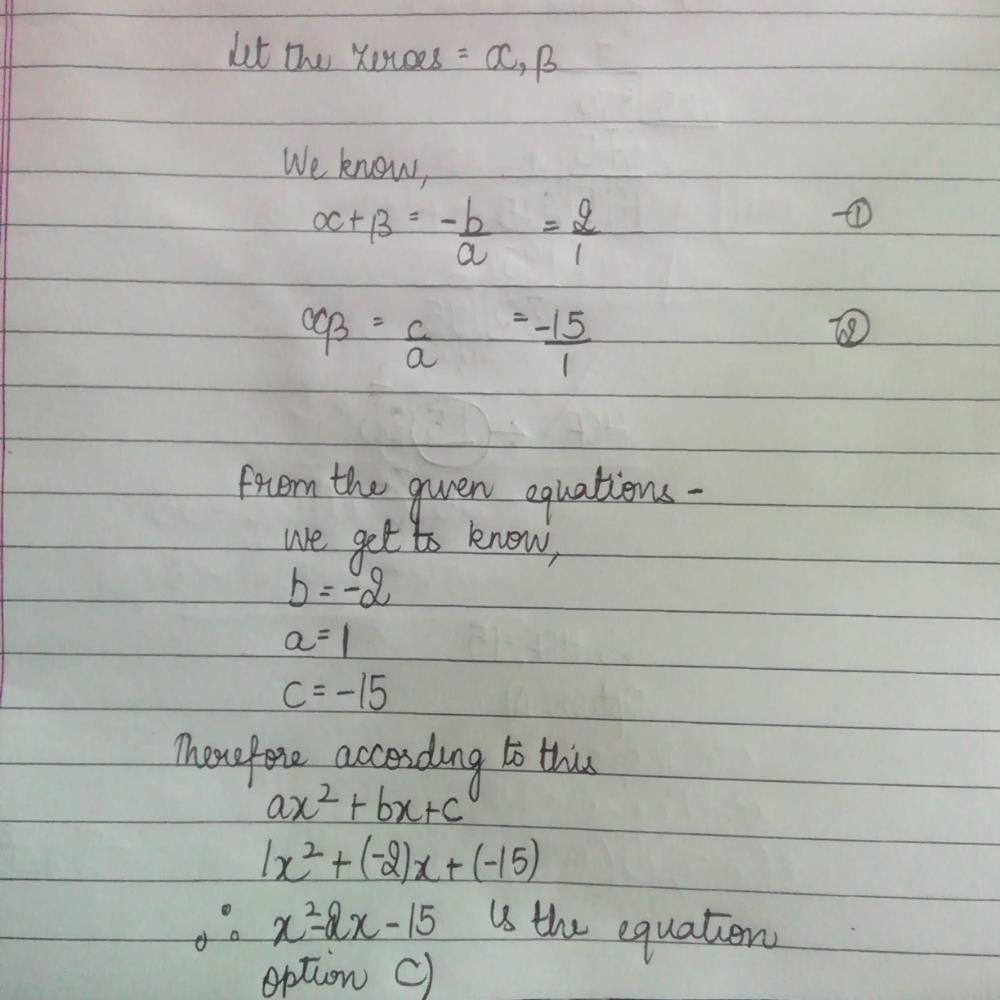 Let the zeroes = α, β
We know,
α+β = -b/a = 2/1 -①
αβ = c/a = -15/1 -②
from the given equations -
we get to know,
b = -2
a = 1
c = -15
Therefore according to this
ax² + bx + c
1x² + (-2)x + (-15)
∴ x²-2x-15 is the equation
option C)